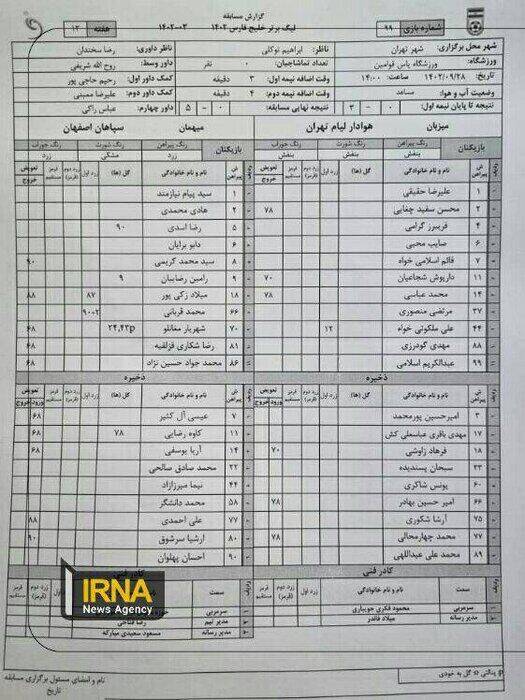 گزارش مسابقه
شماره بازی ۹۹ لیگ برتر خلیج فارس ۱۴۰۲ ۱۴۰۲-۰۳ هفته ۱۳
شهر محل برگزاری: شهر تهران ناظر: ابراهیم توکلی ناظر داوری: رضا سخندان
ورزشگاه: ورزشگاه پاس قوامین تعداد تماشاچیان: ۰ نفر داور وسط: روح الله شریفی
تاریخ: ۱۴۰۲/۰۹/۲۸ ساعت: ۱۴:۰۰ وقت اضافه نیمه اول: ۳ دقیقه کمک داور اول: رحیم حاجی پور
وضعیت آب و هوا: مساعد وقت اضافه نیمه دوم: ۴ دقیقه کمک داور دوم: علیرضا ممبنی
نتیجه تا پایان نیمه اول: ۰ - ۳ نتیجه نهایی مسابقه: ۰ - ۵ داور چهارم: عباس راکی
میزبان هوادار لیام تهران میهمان سپاهان اصفهان
بازیکنان رنگ پیراهن رنگ شورت رنگ جوراب بازیکنان رنگ پیراهن رنگ شورت رنگ جوراب
بنفش بنفش بنفش زرد مشکی زرد
ردیف ش پیراهن نام و نام خانوادگی گل (ها) زرد اول زرد دوم (قرمز) قرمز مستقیم تعویض خروج ردیف ش پیراهن نام و نام خانوادگی گل (ها) زرد اول زرد دوم (قرمز) قرمز مستقیم تعویض خروج
۱ علیرضا حقیقی ۱ سید پیام نیازمند
۲ محسن سفید چغایی ۷۸ ۲ هادی محمدی
۴ فریبرز گرامی ۵ رضا اسدی ۹۰
۶ صایب محبی ۶ دابو برایان
۷ قائم اسلامی خواه ۸ سید محمد کریمی ۹۰
۱۱ داریوش شجاعیان ۷۰ ۹ رامین رضاییان ۹
۱۴ محمد عباسی ۷۸ ۱۸ میلاد زکی پور ۸۷ ۸۸
۳۷ مرتضی منصوری ۶۶ محمد قربانی ۹۰+۲
۴۴ علی ملکوتی خواه ۱۲ ۷۰ شهریار مغانلو ۲۴,۴۳p ۶۸
۸۸ مهدی گودرزی ۸۱ رضا شکاری قزلقیه ۶۸
۹۹ عبدالکریم اسلامی ۸۶ محمد جواد حسین نژاد ۶۸
ذخیره ذخیره
ردیف ش پیراهن نام و نام خانوادگی گل (ها) زرد اول زرد دوم (قرمز) قرمز مستقیم تعویض ورود خروج ردیف ش پیراهن نام و نام خانوادگی گل (ها) زرد اول زرد دوم (قرمز) قرمز مستقیم تعویض ورود خروج
۳ امیرحسین پورمحمد ۷ عیسی آل کثیر ۶۸
۱۷ مهدی باقری عباسعلی کش ۱۱ کاوه رضایی ۷۸ ۶۸
۱۸ فرهاد زاوشی ۷۰ ۱۴ آریا یوسفی ۶۸
۳۳ سبحان پسندیده ۲۲ محمد صادق صالحی
۶۰ یونس شاکری ۴۴ نیما میرزازاد
۶۶ امیر حسین بهادر ۷۸ ۵۸ محمد دانشگر
۷۵ آرشا شکوری ۷۷ علی احمدی ۸۸
۷۷ محمد چهارمحالی ۷۸ ۸۰ ارشیا سرشوق ۹۰
۸۹ محمد علی عبداللهی ۹۰ احسان پهلوان
کادر فنی کادر فنی
ردیف سمت نام و نام خانوادگی زرد اول زرد دوم (قرمز) قرمز مستقیم ردیف سمت نام و نام خانوادگی زرد اول زرد دوم (قرمز) قرمز مستقیم
۱ سرمربی محمود فکری جویباری ۱ سرمربی
۲ مدیر رسانه میلاد قائدر ۲ مدیر تیم رضا فتاحی
۳ مدیر رسانه مسعود سعیدی مبارکه
IRNA
News Agency
p پنالتی گل به خودی
نام و امضای مسئول برگزاری مسابقه
تاریخ